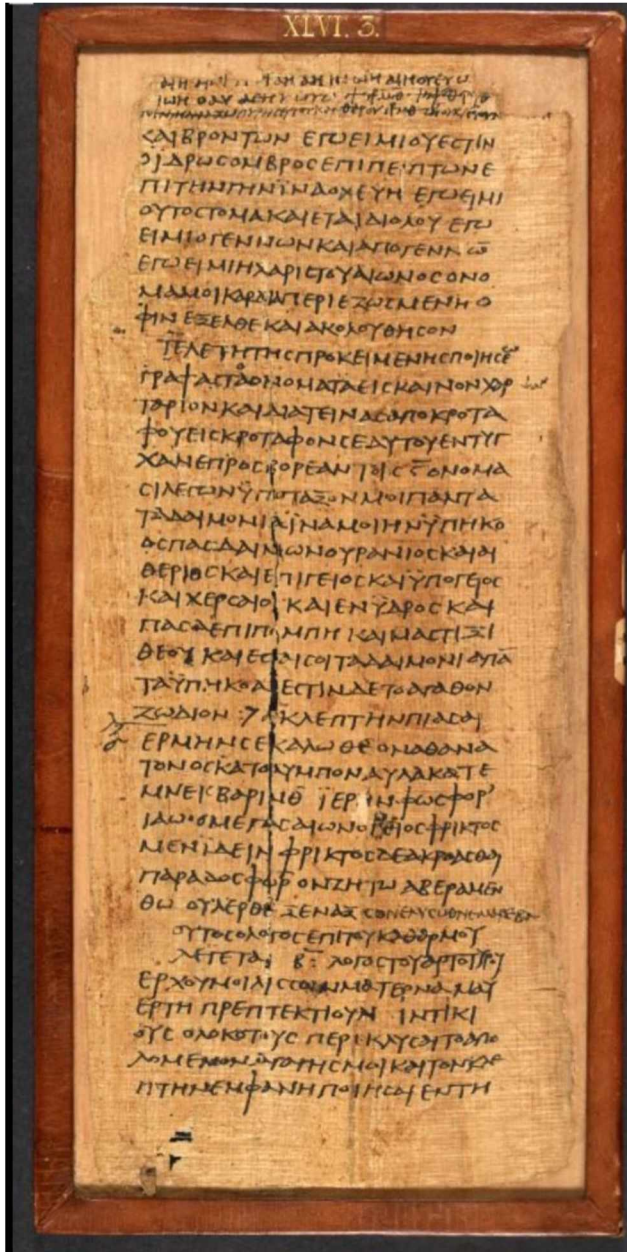 XLVI. 3.
ΚΑΙ ΒΡΟΝΤΩΝ ΕΓΩ ΕΙΜΙ ΟΥ ΕΣΤΙΝ
Ο ΙΔΡΩΣ ΟΜΒΡΟΣ ΕΠΙΠΕΙΠΤΩΝ Ε
ΠΙ ΤΗΝ ΓΗΝ ΪΝΑ ΟΧΕΥΗ ΕΓΩ ΕΙΜΙ
ΟΥ ΤΟ ΣΤΟΜΑ ΚΑΙΕΤΑΙ ΔΙ ΟΛΟΥ ΕΓΩ
ΕΙΜΙ Ο ΓΕΝΝΩΝ ΚΑΙ ΑΠΟΓΕΝΝΩ̄
ΕΓΩ ΕΙΜΙ Η ΧΑΡΙΣ ΤΟΥ ΑΙΩΝΟΣ ΟΝΟ
ΜΑ ΜΟΙ ΚΑΡΔΙΑ ΠΕΡΙΕΖΩΣΜΕΝΗ Ο
ΦΙΝ ΕΞΕΛΘΕ ΚΑΙ ΑΚΟΛΟΥΘΗΣΟΝ
ΤΕΛΕΤΗ ΤΗΣ ΠΡΟΚΕΙΜΕΝΗΣ ΠΟΙΗΣΕ
ΓΡΑΨΑΣ ΤΑ ΟΝΟΜΑΤΑ ΕΙΣ ΚΑΙΝΟΝ ΧΑΡ
ΤΑΡΙΟΝ ΚΑΙ ΔΙΑΤΕΙΝΑΣ ΑΠΟ ΚΡΟΤΑ
ΦΟΥ ΕΙΣ ΚΡΟΤΑΦΟΝ ΣΕΑΥΤΟΥ ΕΝΤΥΓ
ΧΑΝΕ ΠΡΟΣ ΒΟΡΕΑΝ ΤΟΙΣ Ϛ̄ ΟΝΟΜΑ
ΣΙ ΛΕΓΩΝ ΫΠΟΤΑΞΟΝ ΜΟΙ ΠΑΝΤΑ
ΤΑ ΔΑΙΜΟΝΙΑ ΪΝΑ ΜΟΙ ΗΝ ΫΠΗΚΟ
ΟΣ ΠΑΣ ΔΑΙΜΩΝ ΟΥΡΑΝΙΟΣ ΚΑΙ ΑΙ
ΘΕΡΙΟΣ ΚΑΙ ΕΠΙΓΕΙΟΣ ΚΑΙ ΫΠΟΓΕΙΟΣ
ΚΑΙ ΧΕΡΣΑΙΟΣ ΚΑΙ ΕΝΥΔΡΟΣ ΚΑΙ
ΠΑΣΑ ΕΠΙΠΟΜΠΗ ΚΑΙ ΜΑΣΤΙΞ Ι
ΘΕΟΥ ΚΑΙ ΕΣΤΑΙ ΣΟΙ ΤΑ ΔΑΙΜΟΝΙΑ ΠᾹ
ΤΑ ΫΠΗΚΟΑ ΕΣΤΙΝ ΔΕ ΤΟ ΑΓΑΘΟΝ
ΖΩΔΙΟΝ ΚΛΕΠΤΗΝ ΠΙΑΣΑΙ
ΕΡΜΗΝ ΣΕ ΚΑΛΩ ΘΕΟΝ ΑΘΑΝΑ
ΤΟΝ ΟΣ ΚΑΤ ΟΛΥΜΠΟΝ ΑΥΛΑΚΑ ΤΕ
ΜΝΕΙΣ ΒΑΡΙΝ Θ ΪΕΡΗΝ ΦΩΣΦΟΡ
ΙΑΩ Ο ΜΕΓΑΣ ΑΙΩΝΟΒΙΟΣ ΦΡΙΚΤΟΣ
ΜΕΝ ΪΔΕΙΝ ΦΡΙΚΤΟΣ ΔΕ ΑΚΡΟΑΣΘΑΙ
ΠΑΡΑΔΟΣ ΦΩΡ ΟΝ ΖΗΤΩ ΑΒΕΡΑΜΕΝ
ΘΩ ΟΥΛΕΡΘΕ ΞΕΝΑΞ ΣΟΝΕΛΥΣΩΘΝΕΜΑΡΕΒΑ
ΟΥΤΟΣ Ο ΛΟΓΟΣ ΕΠΙ ΤΟΥ ΚΑΘΑΡΜΟΥ
ΛΕΓΕΤΑΙ Β̄ ΛΟΓΟΣ ΤΟΥ ΑΡΤΟΤΥΡΟΥ
ΕΡΧΟΥ ΜΟΙ ΛΙΣΣΟΙΝ ΜΑΤΕΡΝΑ ΜΑΥ
ΕΡΤΗ ΠΡΕΠΤΕΚΤΙΟΥΝ ΙΝΤΙΚΙ
ΟΥΣ ΟΛΟΚΟΤΟΥΣ ΠΕΡΙΚΛΥΣΑΙ ΤΟ ΑΠΟ
ΛΟΜΕΝΟΝ ΑΓΑΓΗΣ ΜΟΙ ΚΑΙ ΤΟΝ ΚΛΕ
ΠΤΗΝ ΕΜΦΑΝΗ ΠΟΙΗΣΑΙ ΕΝ ΤΗ